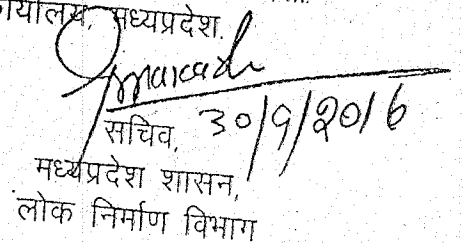 मध्यप्रदेश.
सचिव, 30/9/2016
मध्यप्रदेश शासन,
लोक निर्माण विभाग